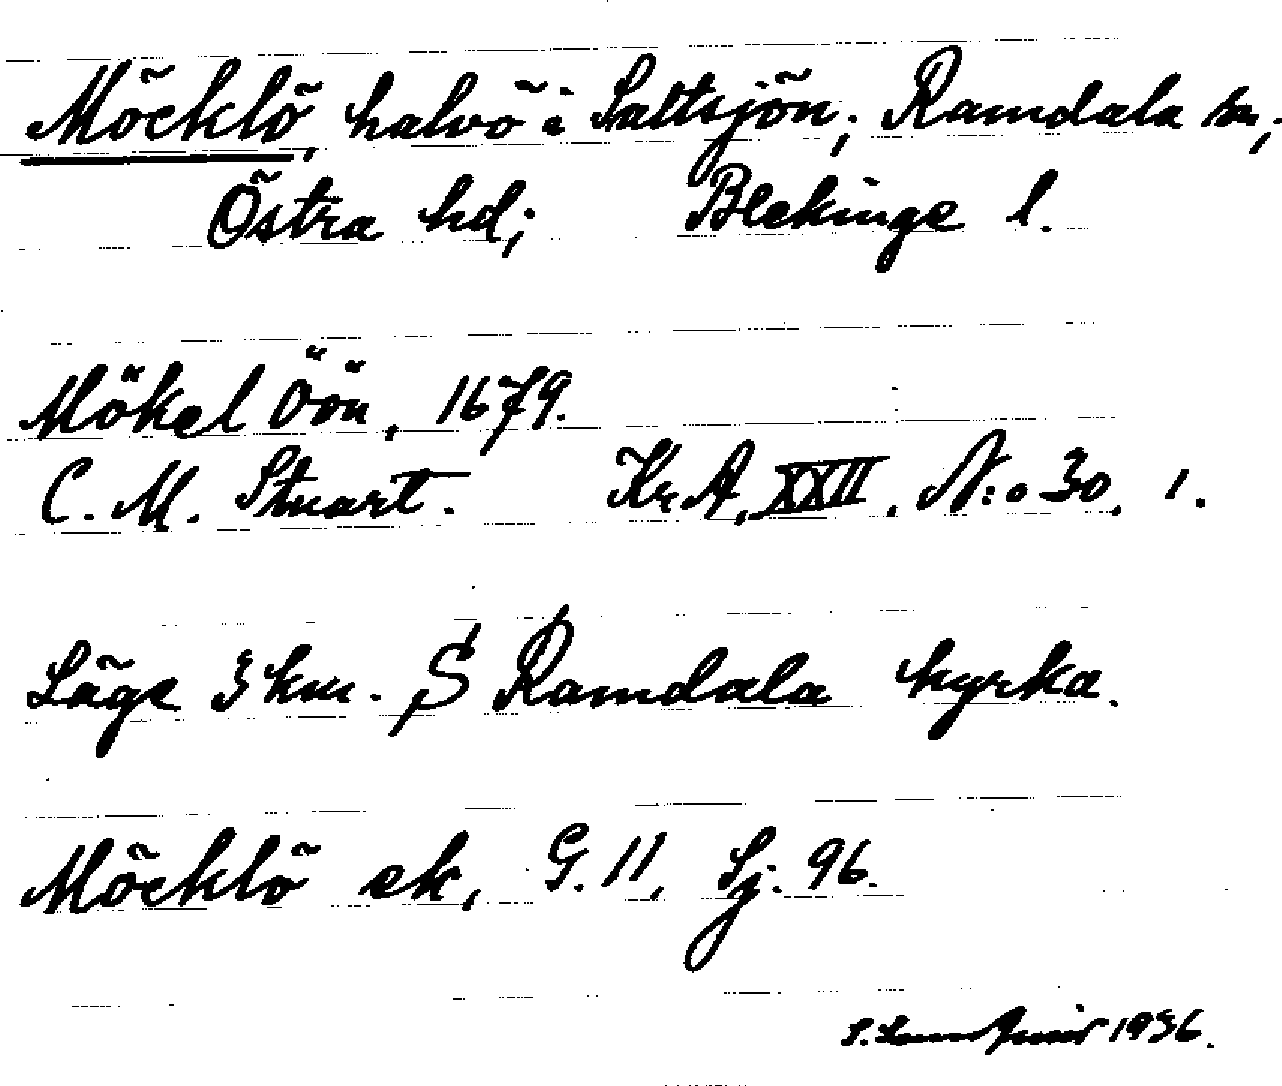 Möcklö, halvö i Saltsjön; Ramdala sn;
Östra hd; Blekinge l.
Mökel Öön, 1679.
C. M. Stuart. KrA, XXII. N:o 30. 1.
Läge 3 km. S Ramdala kyrka.
Möcklö ek, G. 11, Sj. 96.
1936.